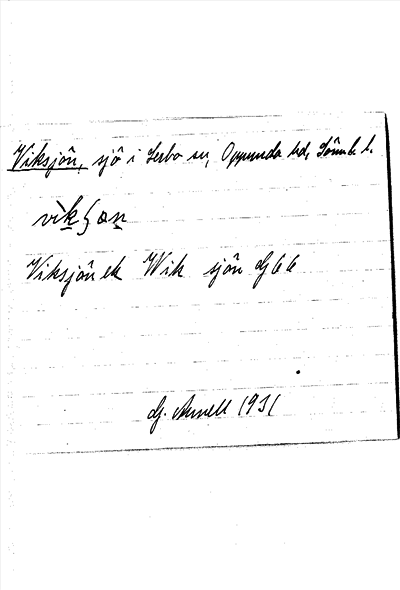 Viksjön, sjö i Lerbo sn, Oppunda hd, Söml. l.
vìkʃøn
Viksjön ek Wik sjön Gbb
G. Arnell 1931